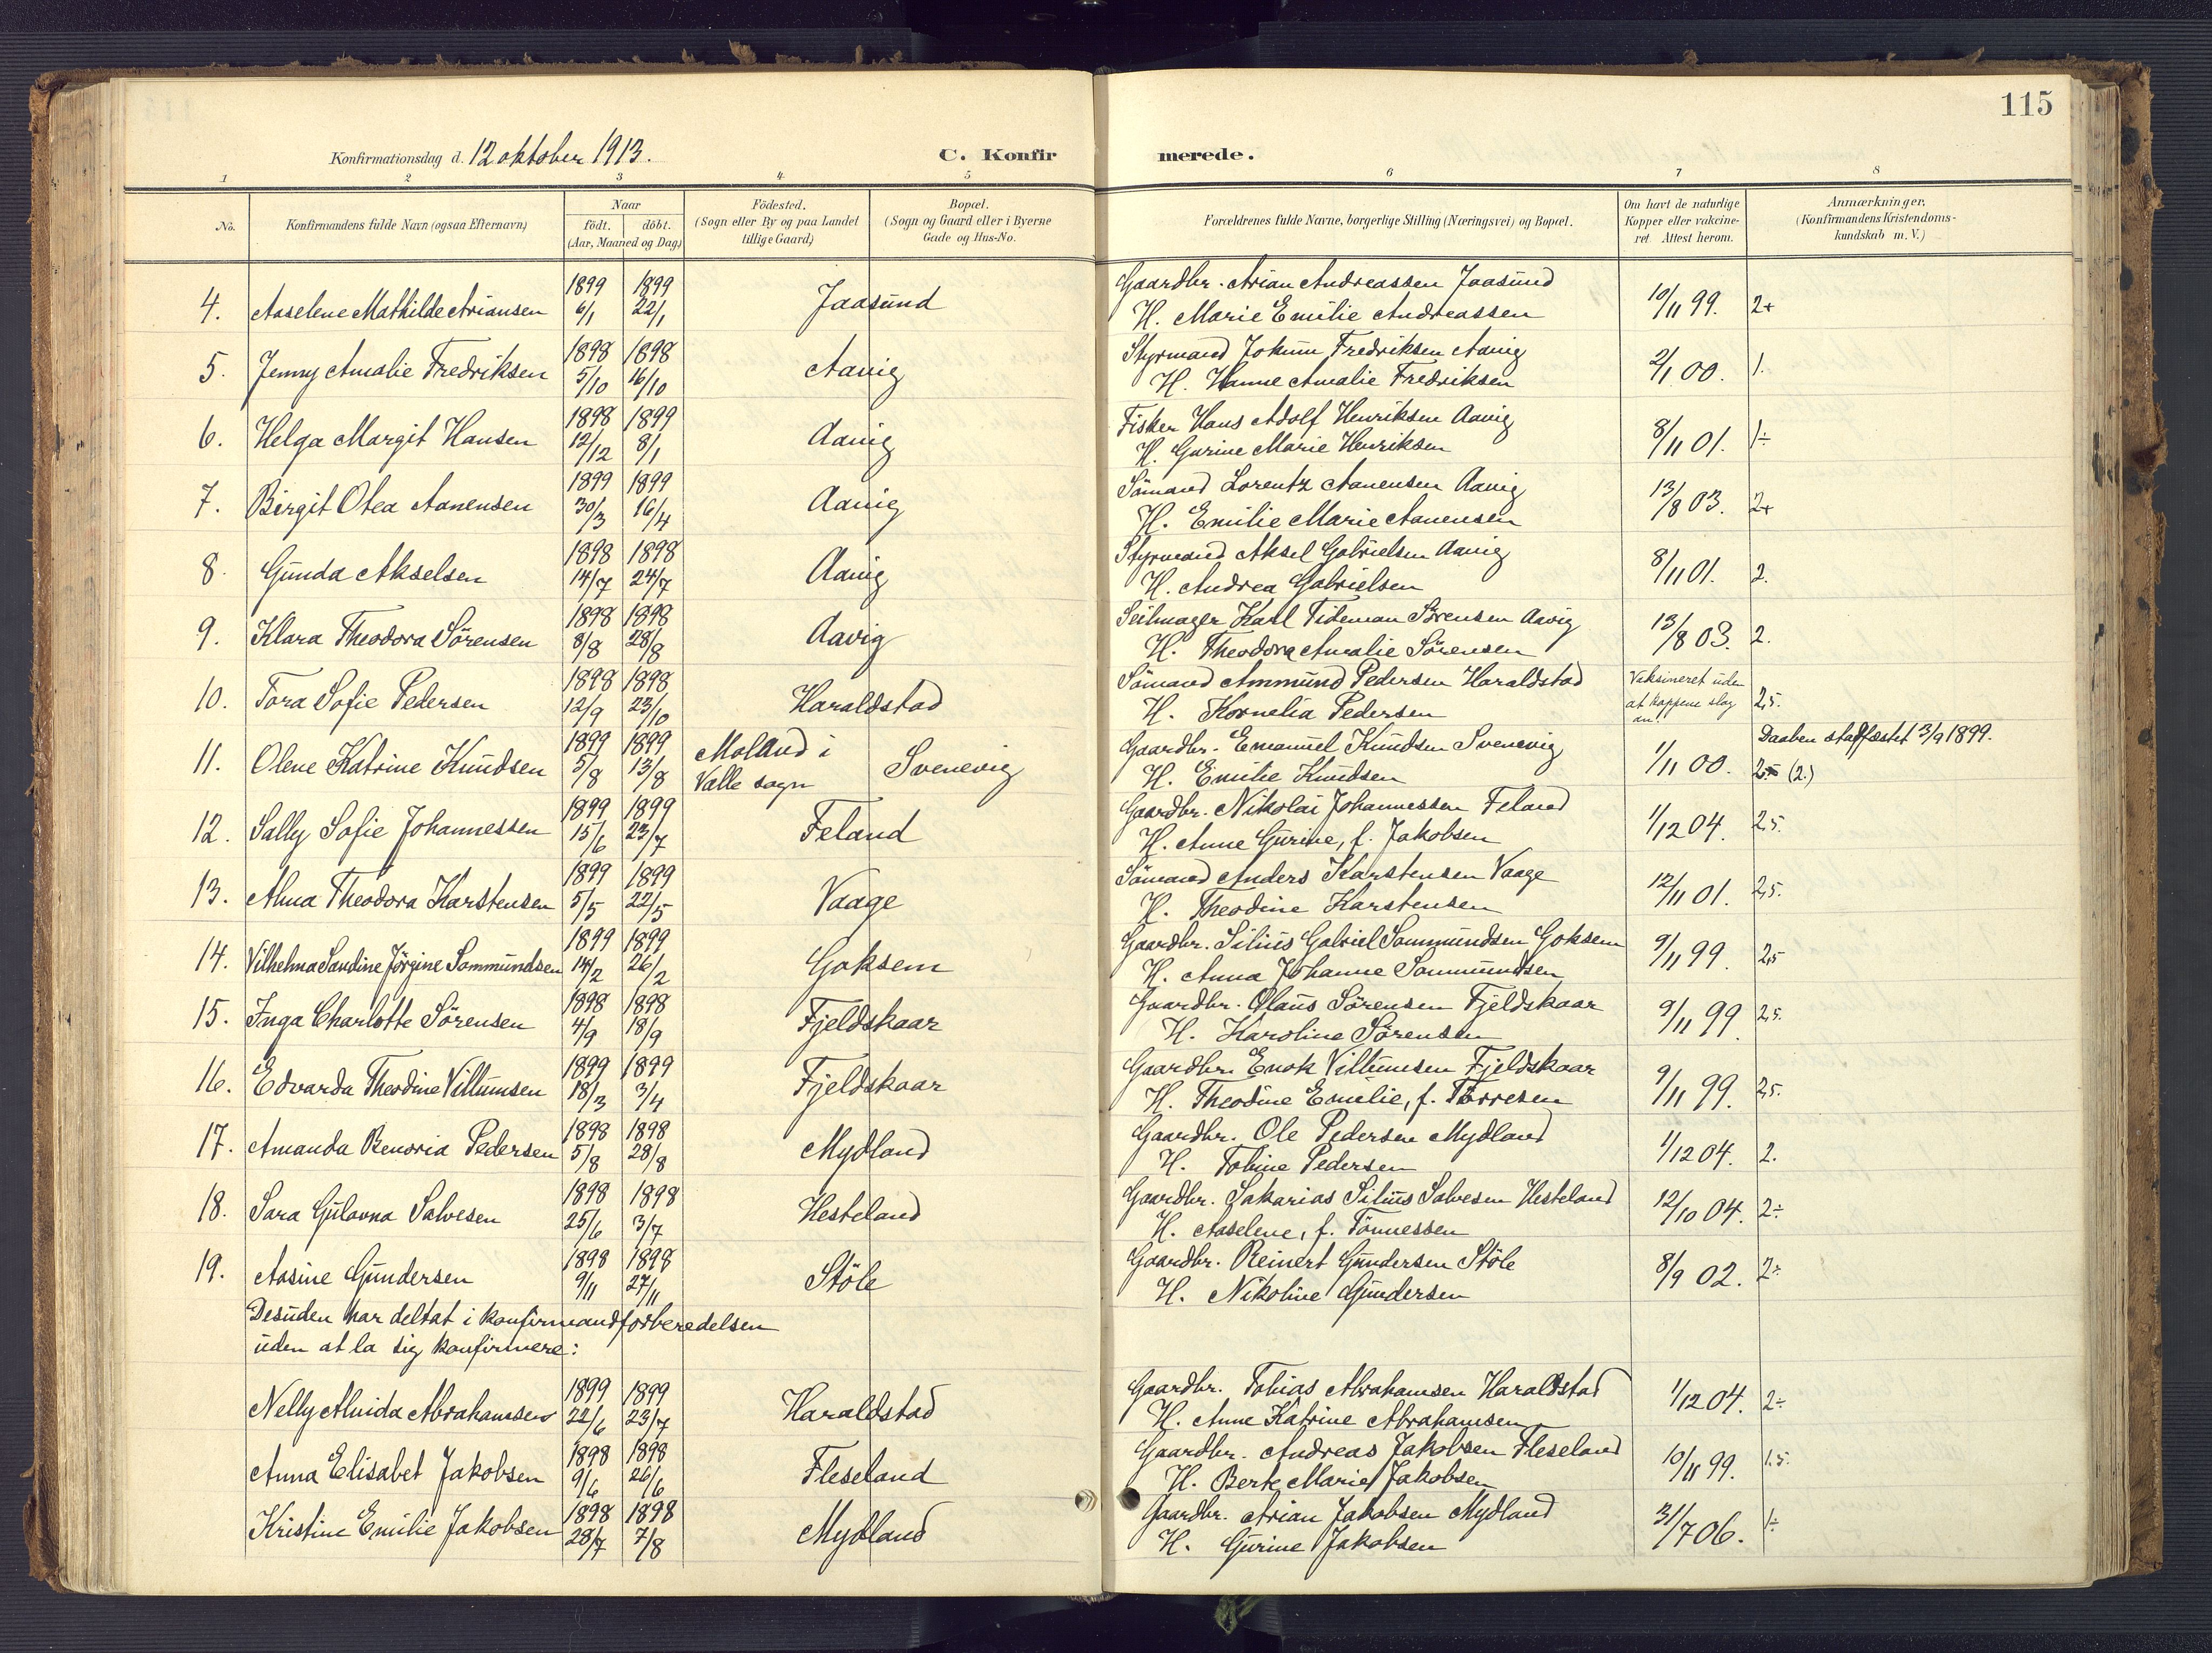 115
Konfirmationsdag d. 12 oktober 1913.
C. Konfirmerede.
1 2 3 4 5 6 7 8
No.
Konfirmandens fulde Navn (ogsaa Efternavn)
Naar
födt. döbt.
(Aar, Maaned og Dag)
Födested.
(Sogn eller By og paa Landet
tillige Gaard)
Bopæl.
(Sogn og Gaard eller i Byerne
Gade og Hus-No.
Forældrenes fulde Navne, borgerlige Stilling (Næringsvei) og Bopæl.
Om havt de naturlige
Kopper eller vakcine-
ret. Attest herom.
Anmærkninger.
(Konfirmandens Kristendoms-
kundskab m. V.)
1899 1899 Gaardbr. Arian Andreassen Jaasund
4. Aaselene Mathilde Ariansen 6/1 22/1 Jaasund H. Marie Emilie Andreassen 10/11 99. 2+
1898 1898 Styrmand Jokum Fredriksen Aavig
5. Jenny Amalie Fredriksen 5/10 16/10 Aavig H. Hanne Amalie Fredriksen 2/1 00. 1.
1898 1899 Fisker Hans Adolf Henriksen Aavig
6. Helga Margit Hansen 12/12 8/1 Aavig H. Gurine Marie Henriksen 8/11 01. 1÷
1899 1899 Sömand Lorentz Aanensen Aavig
7. Birgit Otea Aanensen 30/3 16/4 Aavig H. Emilie Marie Aanensen 13/8 03. 2+
1898 1898 Styrmand Aksel Gabrielsen Aavig
8. Gunda Akselsen 14/7 24/7 Aavig H. Andrea Gabrielsen 8/11 01. 2.
1898 1898 Seilmager Karl Tideman Sörensen Aavig
9. Klara Theodora Sörensen 8/8 28/8 Aavig H. Theodora Amalie Sörensen 13/8 03. 2.
1898 1898 Sömand Ammund Pedersen Haraldstad Vaksineret uden
10. Tora Sofie Pedersen 12/9 23/10 Haraldstad H. Kornelia Pedersen at koppene slog an! 2,5.
1899 1899 Moland i Gaardbr. Emanuel Knudsen Svenevig Daaben stadfæstet 3/9 1899.
11. Olene Katrine Knudsen 5/8 13/8 Valle sogn Svenevig H. Emilie Knudsen 1/11 00. (2.)
1899 1899 Gaardbr. Nikolai Johannessen Feland
12. Sally Sofie Johannessen 15/6 23/7 Feland H. Anne Gurine, f. Jakobsen 1/12 04. 2,5.
1899 1899 Sömand Anders Karstensen Vaage
13. Alma Theodora Karstensen 5/5 22/5 Vaage H. Theodine Karstensen 12/11 01. 2,5.
1899 1899 Gaardbr. Silius Gabriel Sommundsen Goksem
14. Vilhelma Sandine Jörgine Sommundsen 14/2 26/2 Goksem H. Anna Johanne Sommundsen 9/11 99. 2,5
1898 1898 Gaardbr. Olaus Sörensen Fjeldskaar
15. Inga Charlotte Sörensen 4/9 18/9 Fjeldskaar H. Karoline Sörensen 9/11 99 2,5.
1899 1899 Gaardbr. Enok Villumsen Fjeldskaar
16. Edvarda Theodine Villumsen 18/3 3/4 Fjeldskaar H. Theodine Emilie, f. Törresen 9/11 99. 2,5.
1898 1898 Gaardbr. Ole Pedersen Mydland
17. Amanda Renoria Pedersen 5/8 28/8 Mydland H. Tobine Pedersen 1/12 04. 2.
1898 1898 Gaardbr. Sakarias Silius Salvesen Hesteland
18. Sara Gulovna Salvesen 25/6 3/7 Hesteland H. Aaselene, f. Tönnessen 12/10 04. 2÷
1898 1898 Gaardbr. Reinert Gundersen Stöle
19. Aasine Gundersen 9/11 27/11 Stöle H. Nikoline Gundersen 8/9 02. 2÷
Desuden har deltat i konfirmandforberedelsen
uden at la sig konfirmere:
1899 1899 Gaardbr. Tobias Abrahamsen Haraldstad
Nelly Alvida Abrahamsen 22/6 23/7 Haraldstad H. Anne Katrine Abrahamsen 1/12 04. 2÷
1898 1898 Gaardbr. Andreas Jakobsen Fleseland
Anna Elisabet Jakobsen 9/6 26/6 Fleseland H. Berte Marie Jakobsen 10/11 99. 1,5.
1898 1898 Gaardbr. Arian Jakobsen Mydland
Kristine Emilie Jakobsen 28/7 7/8 Mydland H. Gurine Jakobsen 31/7 06. 1÷